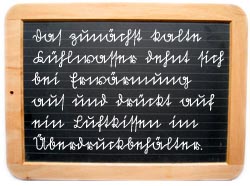 Das zunächst kalte
Kühlwasser dehnt sich
bei Erwärmung
aus und drückt auf
ein Luftkissen im
Überdruckbehälter.